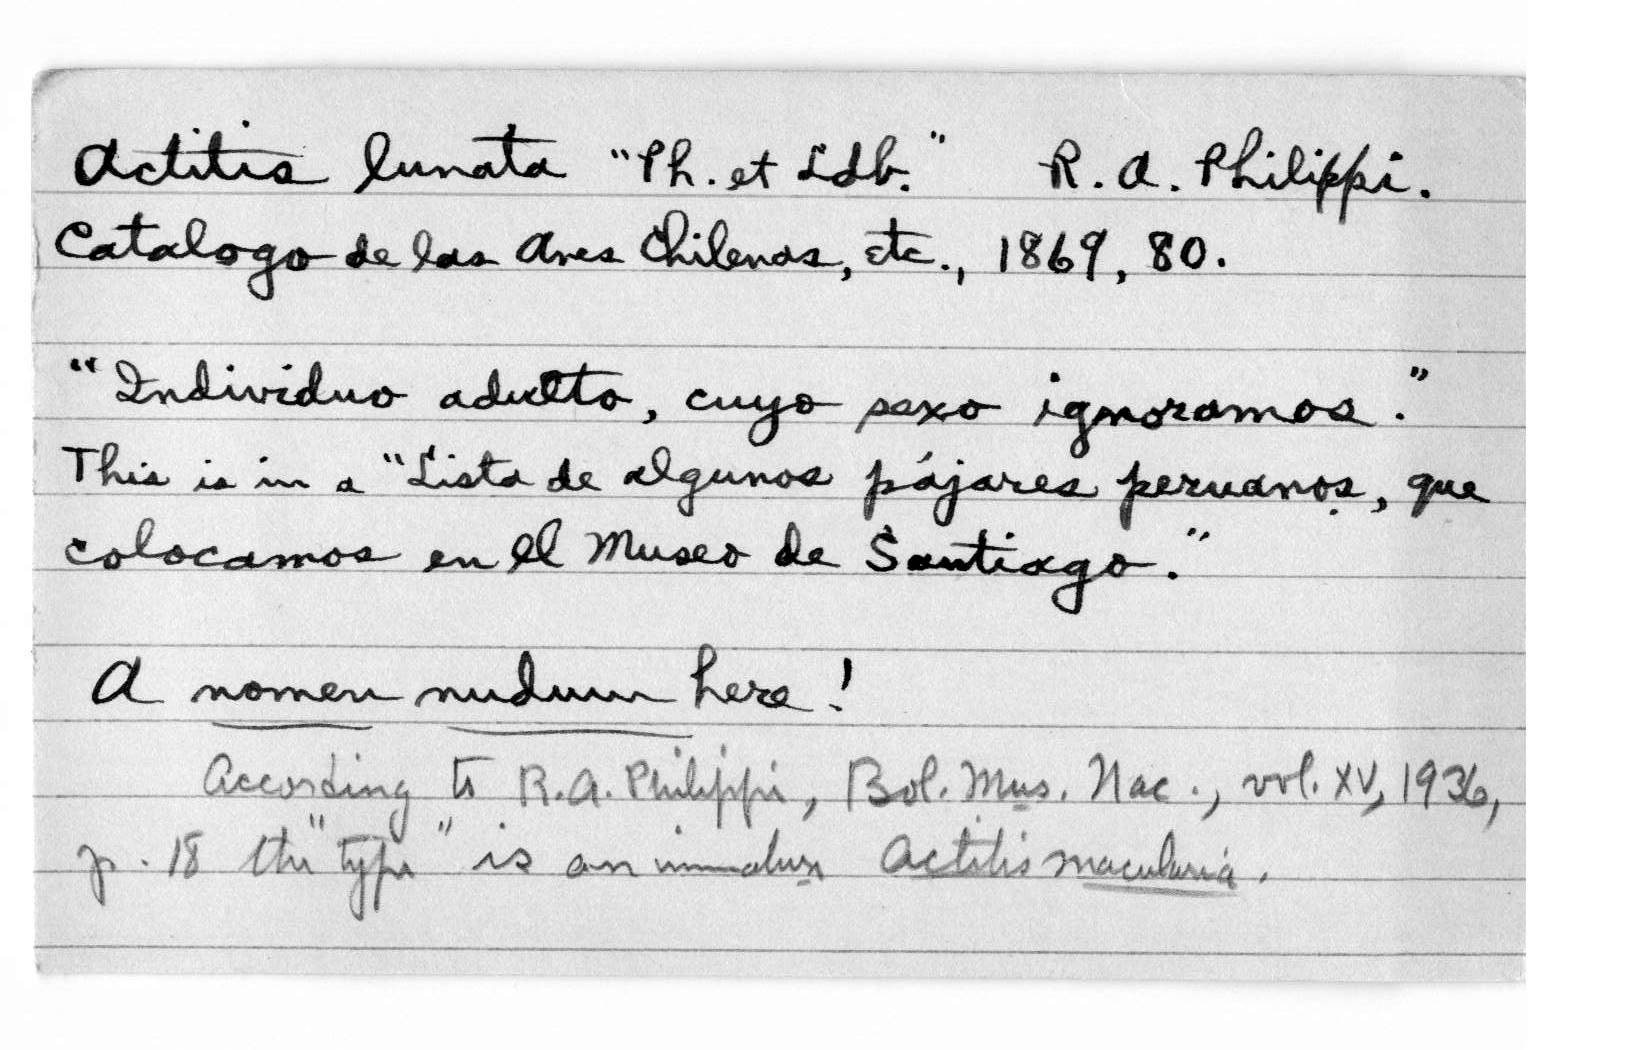 Actitis lunata "Ph. et Ldb." R. A. Philippi.
Catalogo de las Aves Chilenas, etc., 1869, 80.
"Individuo adulto, cuyo sexo ignoramos."
This is in a "Lista de algunos pájares peruanos, que
colocamos en el Museo de Santiago."
A nomen nudum here!
According to R.A. Philippi, Bol. Mus. Nac., vol. XV, 1936,
p. 18 the "type" is an immature Actitis macularia.